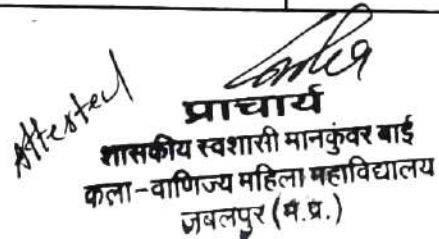 Attested
प्राचार्य
शासकीय स्वशासी मानकुंवर बाई
कला-वाणिज्य महिला महाविद्यालय
जबलपुर (म.प्र.)